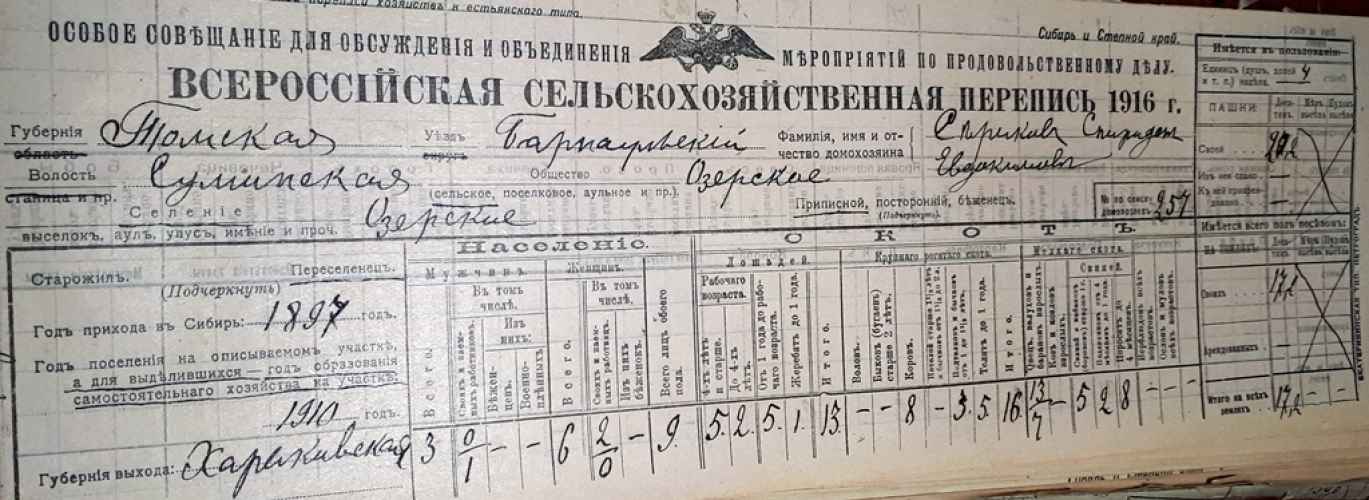 хозяйства к
типа.
Сибирь и Степной край.
ОСОБОЕ СОВѢЩАНІЕ ДЛЯ ОБСУЖДЕНІЯ И ОБЪЕДИНЕНІЯ МѢРОПРІЯТІЙ ПО ПРОДОВОЛЬСТВЕННОМУ ДѢЛУ.
ВСЕРОССІЙСКАЯ СЕЛЬСКОХОЗЯЙСТВЕННАЯ ПЕРЕПИСЬ 1916 г.
Губернія Томская Уѣздъ Барнаульскій Фамилія, имя и от-
область округъ чество домохозяина Евдакимовъ
Волость Суминская Общество Озерское
станица и пр. (сельское, поселковое, аульное и пр.) Приписной, посторонній, бѣженецъ.
(Подчеркнуть).
№ по списку домохозяевъ 257
Селеніе Озерские
выселокъ, аулъ, улусъ, имѣніе и проч.
Старожилъ. Переселенецъ.
(Подчеркнуть)
Годъ прихода въ Сибирь: 1897 годъ.
Годъ поселенія на описываемомъ участкѣ,
а для выдѣлившихся — годъ образованія
самостоятельнаго хозяйства на участкѣ
1910 годъ.
Губернія выхода: Харьковская
Населеніе.
Мужчинъ. Женщинъ.
Всего.
Въ томъ числѣ.
Своихъ и наем-ныхъ работниковъ.
Изъ нихъ:
Бѣжен-цевъ.
Военно-плѣнныхъ
Всего.
Въ томъ числѣ.
Своихъ и наем-ныхъ работницъ.
Изъ нихъ бѣженокъ.
Всего лицъ обоего пола.
СКОТЪ.
Лошадей.
Рабочаго возраста.
4-хъ лѣтъ и старше.
До 4-хъ лѣтъ.
Отъ 1 года до рабо-чаго возраста.
Жеребятъ до 1 года.
Итого.
Крупнаго рогатаго скота.
Воловъ.
Быковъ (бугаевъ) старше 2 лѣтъ.
Коровъ.
Телятъ до 1 года.
Итого.
Мелкаго скота.
Свиней.
3 0/1 – – 6 2/0 – 9. 5. 2. 5. 1. 13. – – 8 – 3. 5. 16. 13/7 – 5 2 8 – – –
Имѣется въ пользованіи:
Единицъ (душъ, долей 4
и т. п.) надѣла.
ПАШНИ
Своей
Изъ нея сдано —
Имѣется всего подъ посѣвомъ:
Своихъ 17,2
Арендованныхъ
Итого на всѣхъ земляхъ 17,2